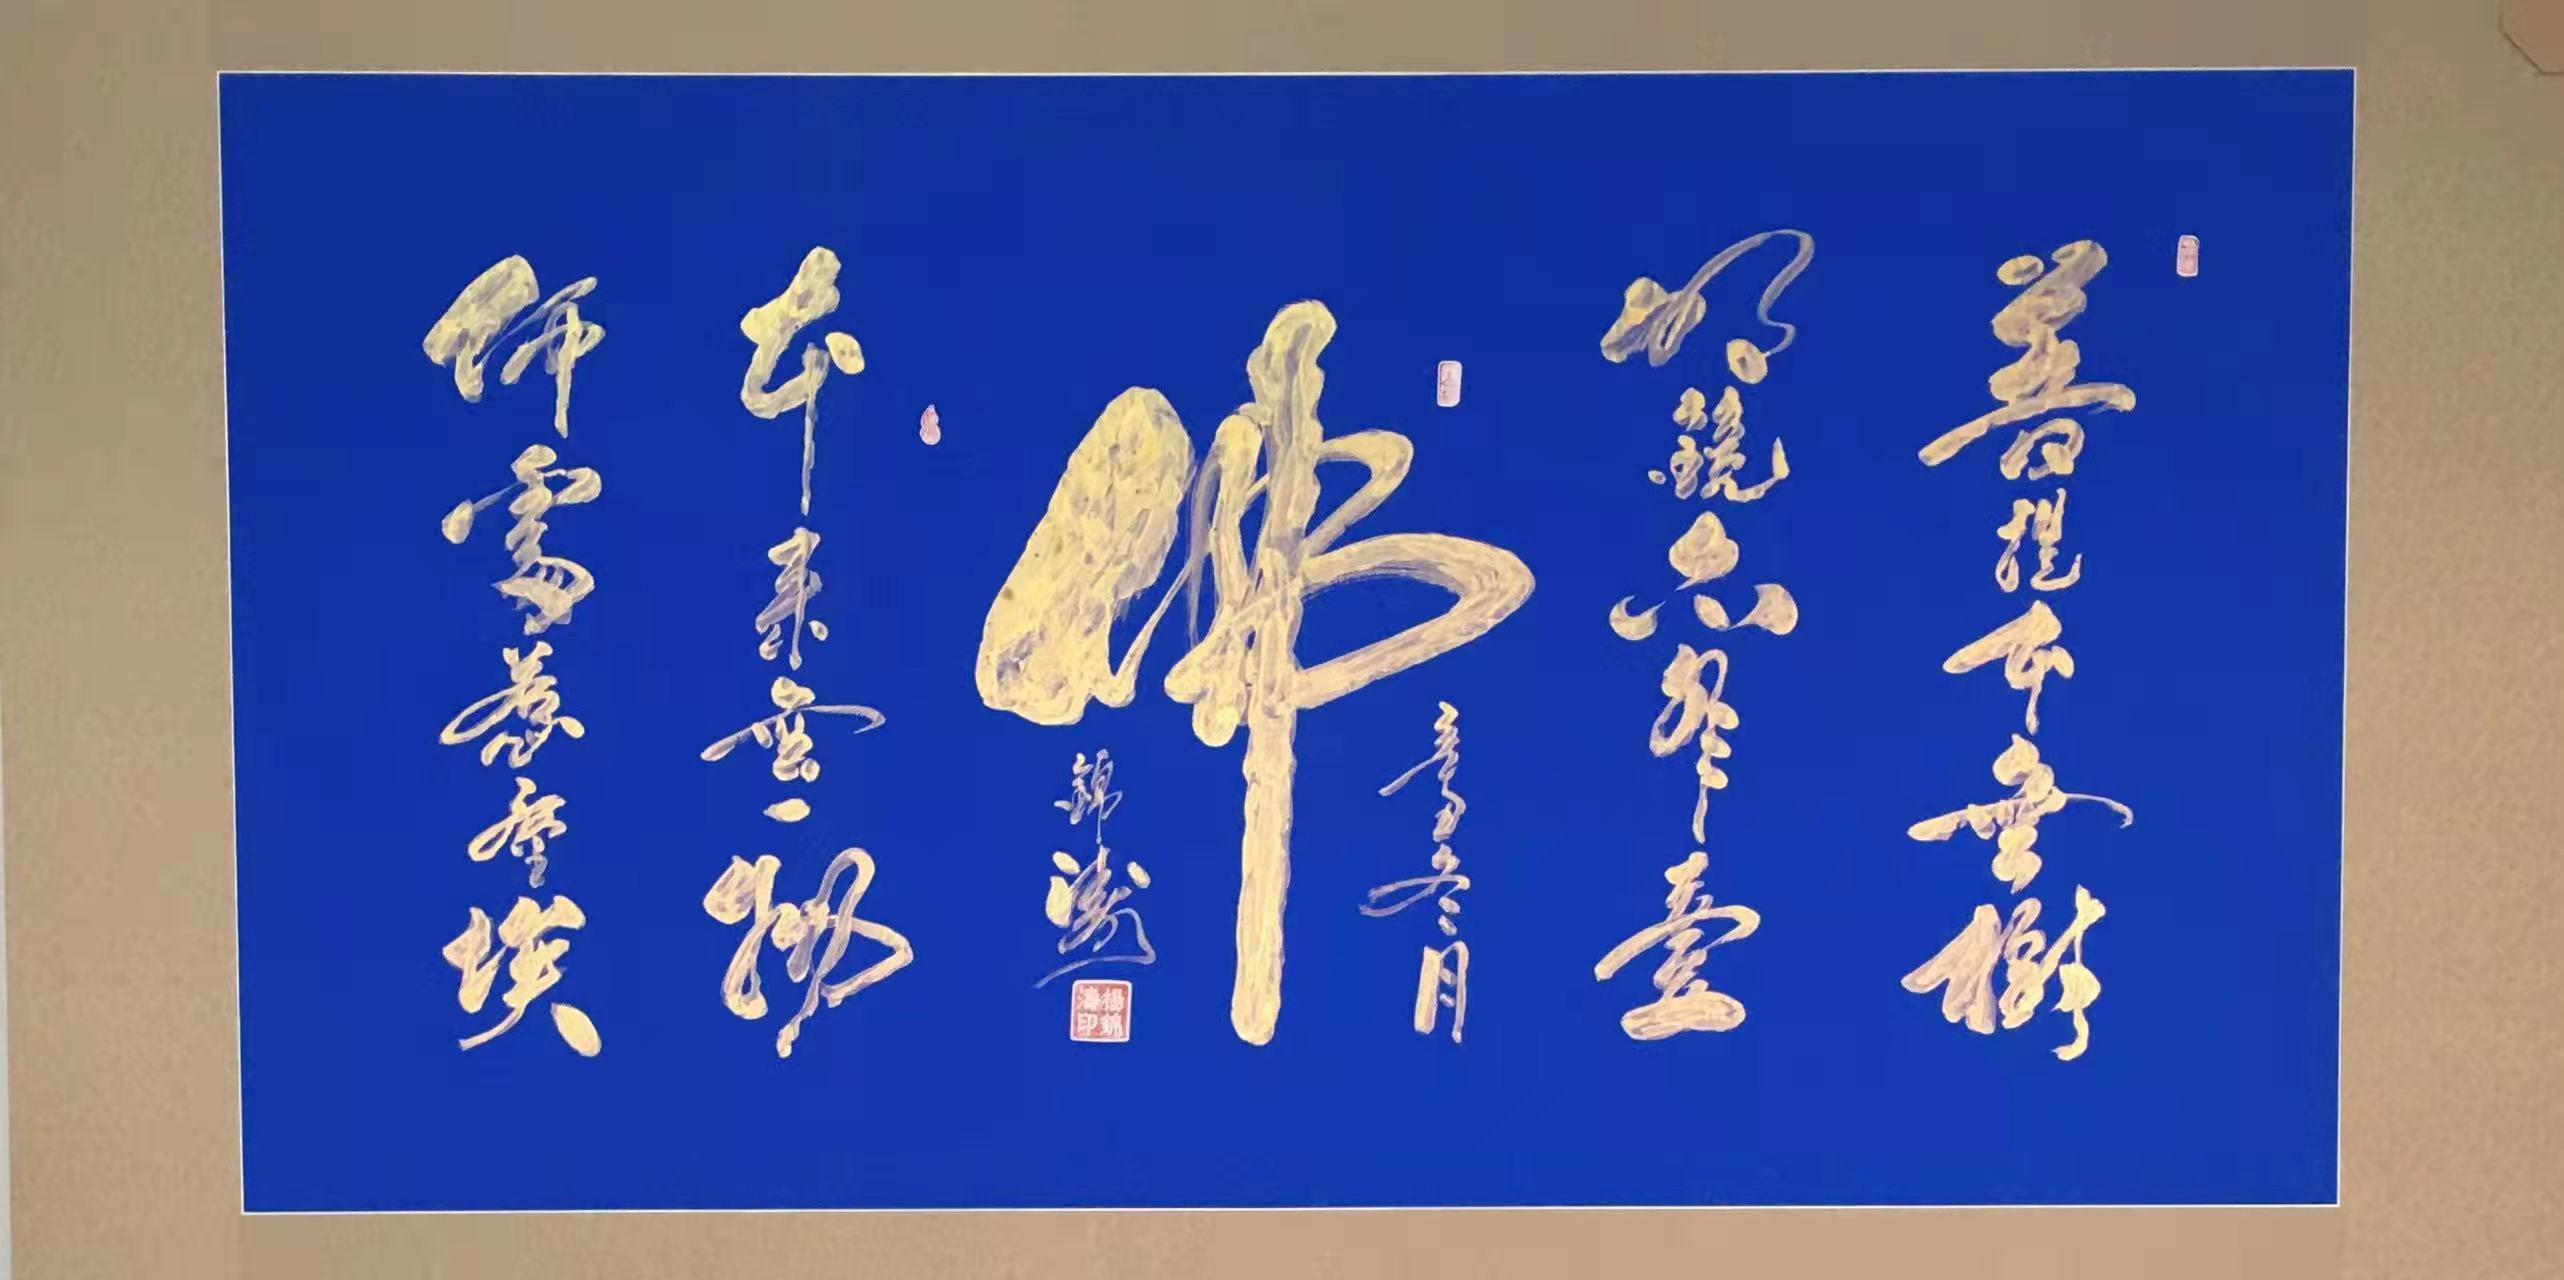 菩提本無樹
明鏡亦非臺
辛丑冬月
佛
錦濤
楊錦濤印
本來無一物
何處惹塵埃